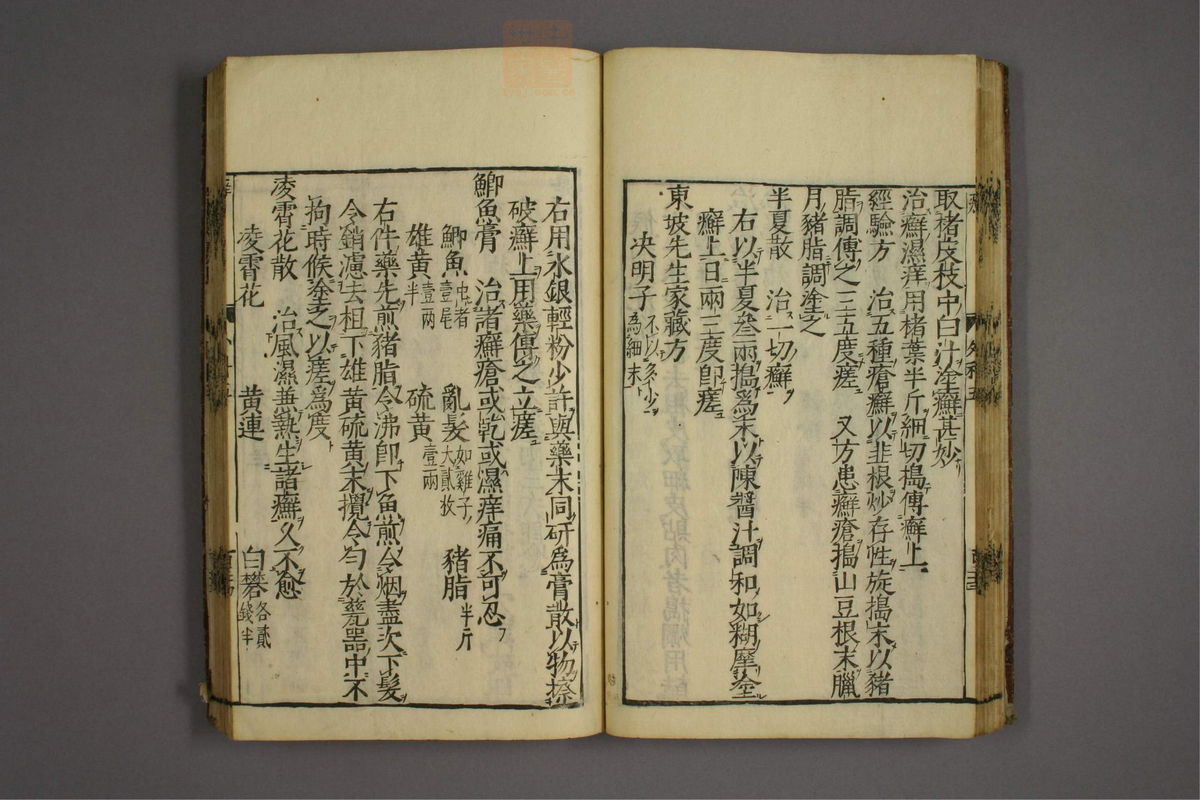 取褚皮枝中白汁塗癬甚妙
治癬濕痒用楮葉半斤細切搗傅癬上
經驗方　治五種瘡癬以韭根炒存性旋搗末以豬
脂調傅之三五度瘥　又方患癬瘡搗山豆根末臘
月豬脂調塗之
半夏散　治一切癬
右以半夏叄兩搗爲末以陳醬汁調和如糊摩塗
癬上日兩三度卽瘥
東坡先生家藏方
決明子不以多少爲細末
右用水銀輕粉少許與藥末同研爲膏散以物擦
破癬上用藥傅之立瘥
鯽魚膏　治諸癬瘡或乾或濕痒痛不可忍
鯽魚壹尾　亂髮如雞子大貳枚　豬脂半斤
雄黃壹兩半　硫黃壹兩
右件藥先煎豬脂令沸卽下魚煎令烟盡次下髮
令銷濾去柤下雄黃硫黃末攪令勻於甆器中不
拘時候塗之以瘥爲度
凌霄花散　治風濕兼熱生諸癬久不愈
凌霄花　黃連　白礬各貳錢半